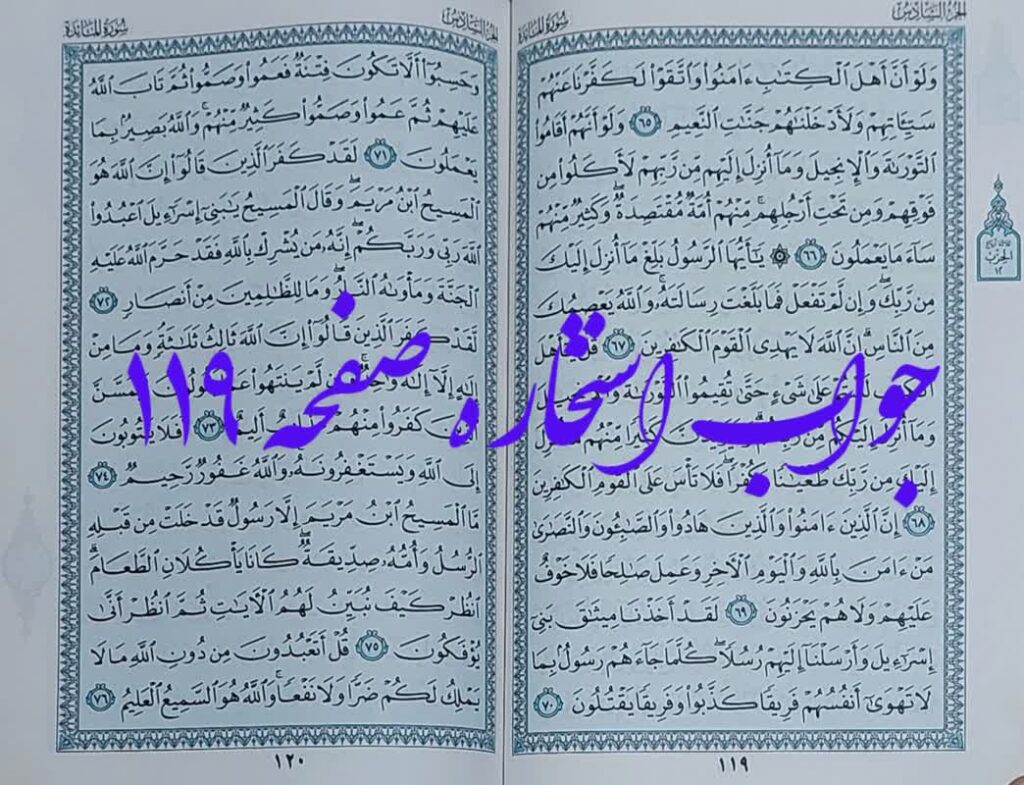 الجزء السادس
سورة المائدة
ولو أن أهل الكتاب ءامنوا واتقوا لكفرنا عنهم
سيـٔاتهم ولأدخلناهم جنات النعيم ٦٥ ولو أنهم أقاموا
التورىة والإنجيل وما أنزل إليهم من ربهم لأكلوا من
فوقهم ومن تحت أرجلهم منهم أمة مقتصدة وكثير منهم
ساء ما يعملون ٦٦ ۞ يـٰأيها الرسول بلغ ما أنزل إليك
من ربك وإن لم تفعل فما بلغت رسالته والله يعصمك
من الناس إن الله لا يهدى القوم الكٰفرين ٦٧ قل يـٰأهل
الكتٰب لستم على شىء حتى تقيموا التورىة والإنجيل
وما أنزل إليكم من ربكم وليزيدن كثيرا منهم ما أنزل
إليك من ربك طغيٰنا وكفرا فلا تأس على القوم الكٰفرين
٦٨ إن الذين ءامنوا والذين هادوا والصٰبـٔون والنصٰرى
من ءامن بالله واليوم الأخر وعمل صٰلحا فلا خوف
عليهم ولا هم يحزنون ٦٩ لقد أخذنا ميثٰق بنى
إسرٰءيل وأرسلنا إليهم رسلا كلما جاءهم رسول بما
لا تهوى أنفسهم فريقا كذبوا وفريقا يقتلون ٧٠
١١٩
الحزب
١٢
الجزء السادس
سورة المائدة
وحسبوا ألا تكون فتنة فعموا وصموا ثم تاب الله
عليهم ثم عموا وصموا كثير منهم والله بصير بما
يعملون ٧١ لقد كفر الذين قالوا إن الله هو
المسيح ابن مريم وقال المسيح يـٰبنى إسرٰءيل اعبدوا
الله ربى وربكم إنه من يشرك بالله فقد حرم الله عليه
الجنة ومأوىٰه النار وما للظٰلمين من أنصار ٧٢
لقد كفر الذين قالوا إن الله ثالث ثلٰثة وما من
إلٰه إلا إلٰه وٰحد وإن لم ينتهوا عما يقولون ليمسن
الذين كفروا منهم عذاب أليم ٧٣ أفلا يتوبون
إلى الله ويستغفرونه والله غفور رحيم ٧٤
ما المسيح ابن مريم إلا رسول قد خلت من قبله
الرسل وأمه صديقة كانا يأكلان الطعام
انظر كيف نبين لهم الأيٰت ثم انظر أنى
يؤفكون ٧٥ قل أتعبدون من دون الله ما لا
يملك لكم ضرا ولا نفعا والله هو السميع العليم ٧٦
١٢٠
جواب استخاره صفحه ۱۱۹